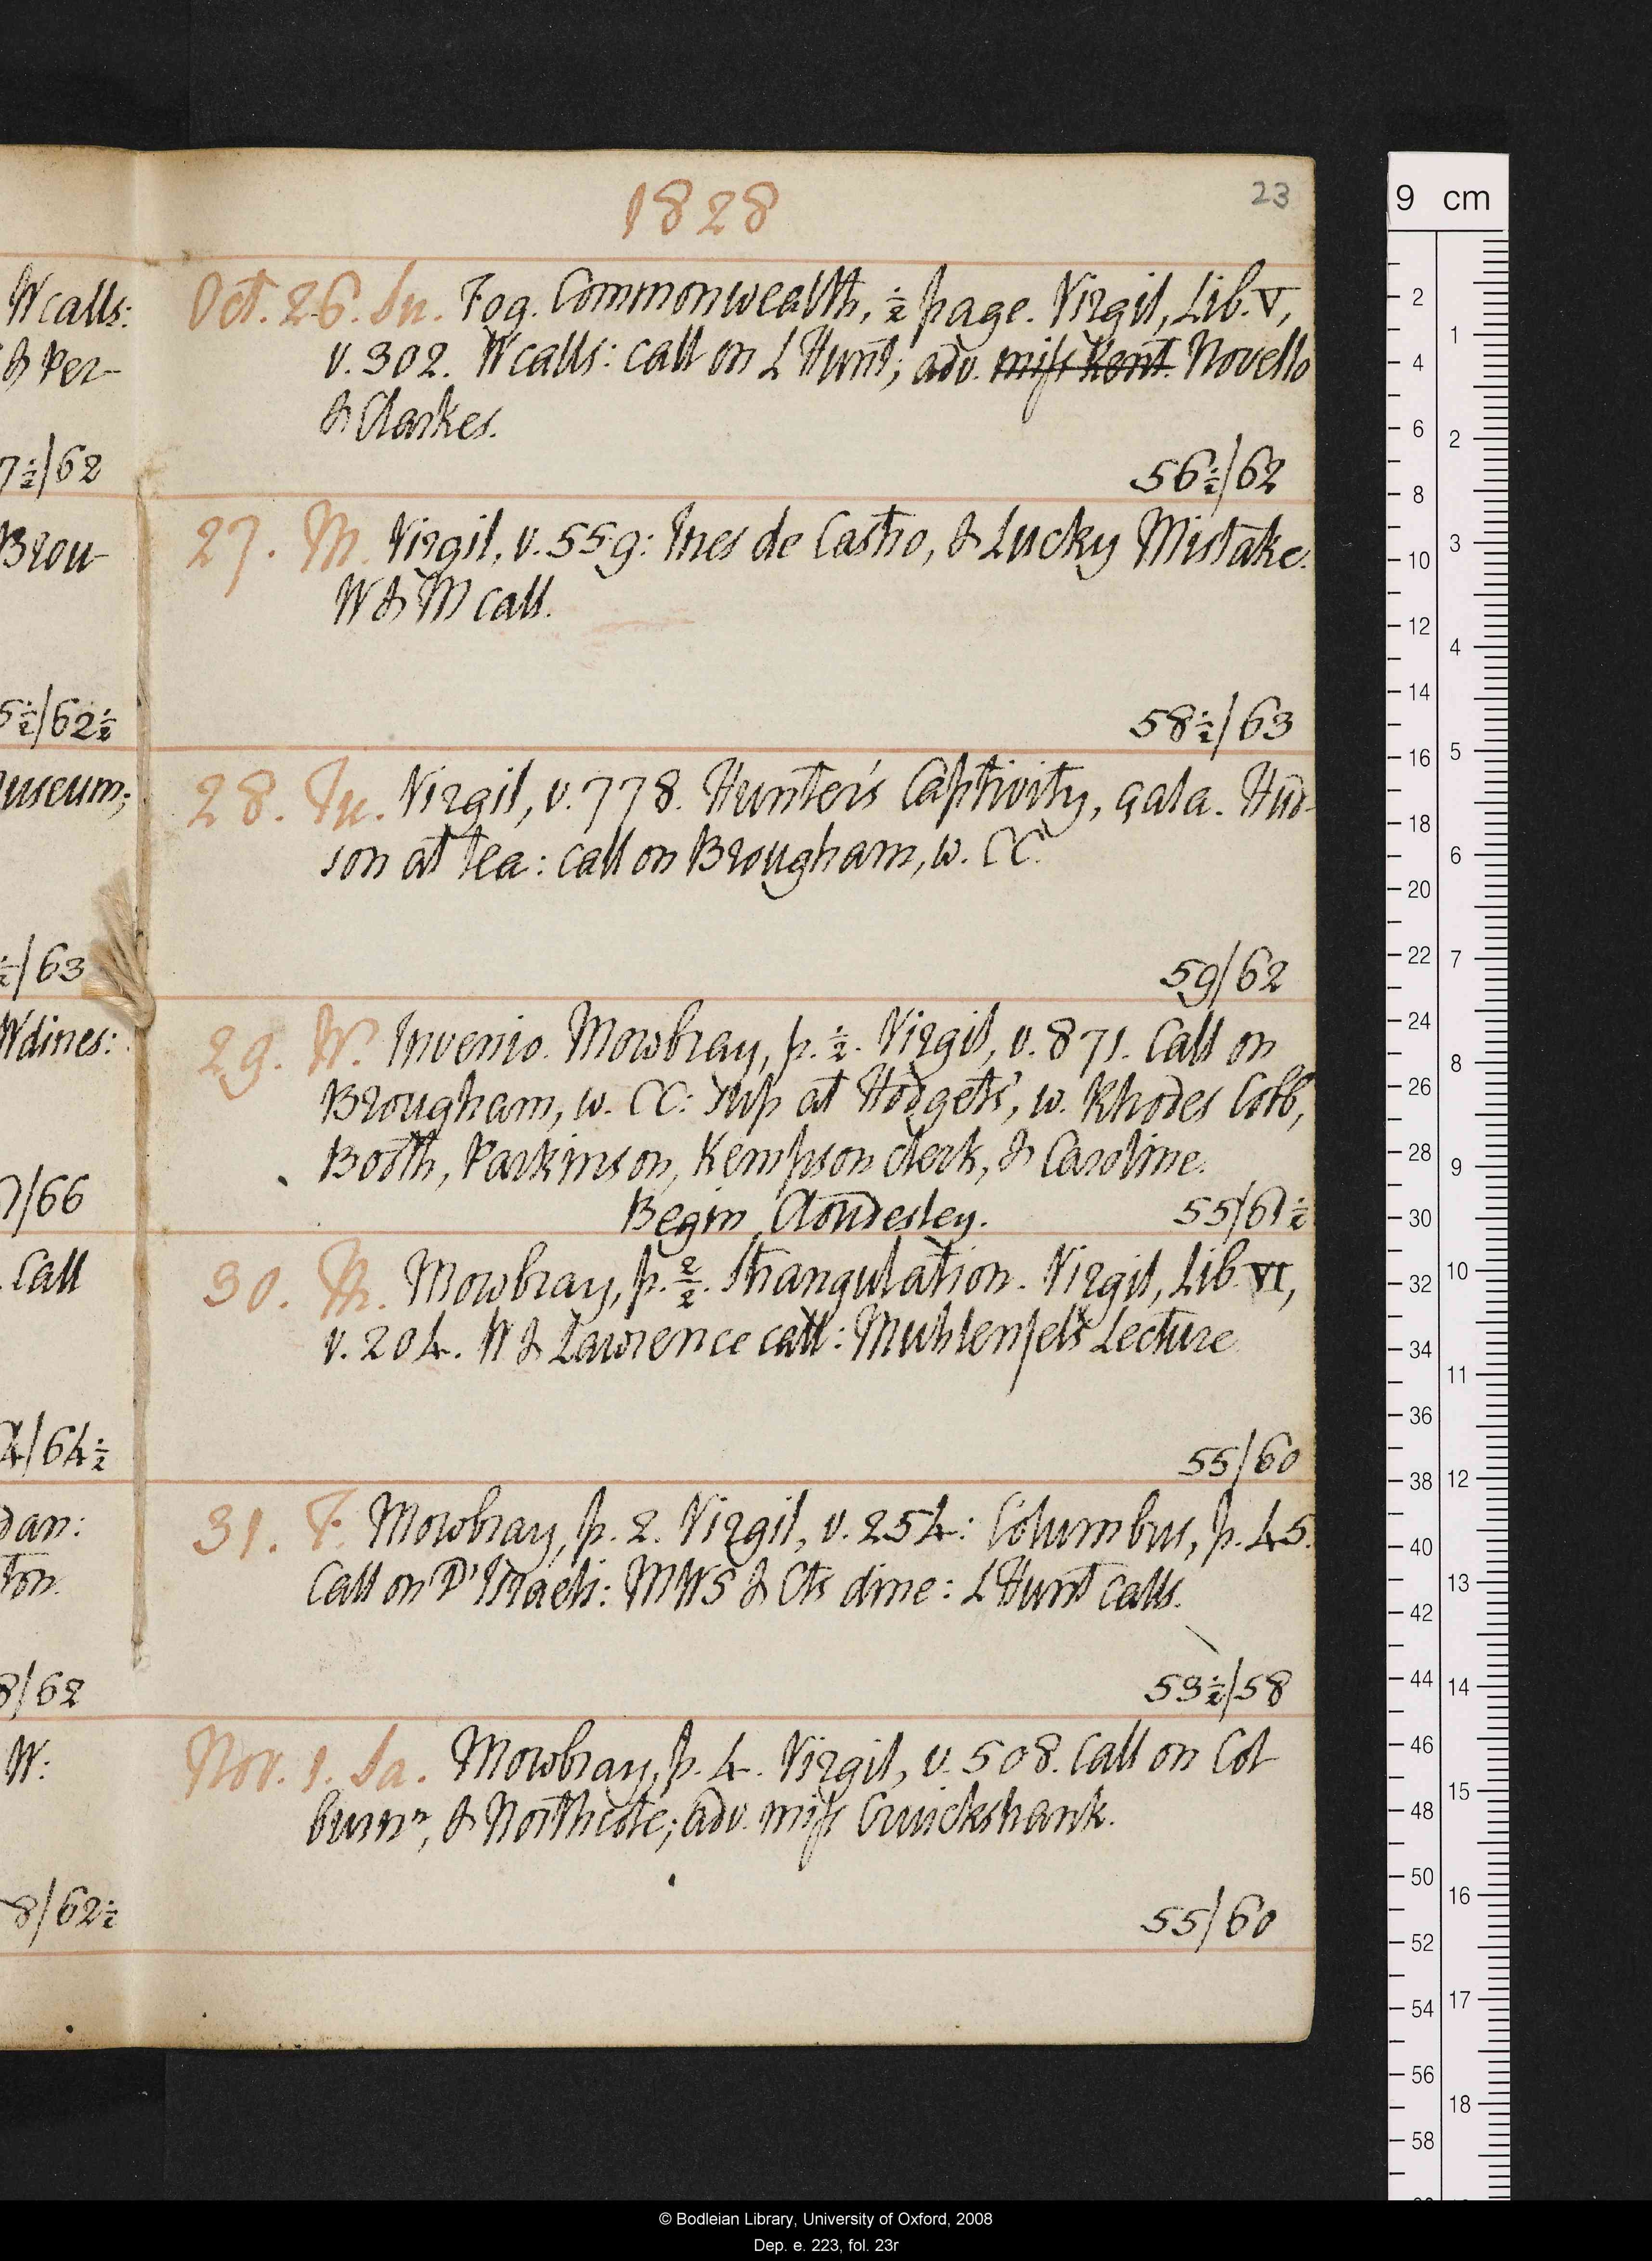 1828
23
Oct. 26. Su. Fog. Commonwealth, ½ page. Virgil, Lib. V,
v. 302. W calls: call on L Hunt; adv. miss Kent. Novello
& Clarkes.
56½/62
27. M. Virgil, v. 559: Ines de Castro, & Lucky Mistake.
W & M call.
58½/63
28. Tu. Virgil, v. 778. Hunter's Captivity, çala. Hud-
son at tea: call on Brougham, w. CC.
59/62
29. W. Invenio. Mowbray, p. ½. Virgil, v. 871. Call on
Brougham, w. CC: sup at Hodgets', w. Rhodes Cobb,
Booth, Parkinson, Kempson clerk, & Caroline.
Begin Cloudesley. 55/61½
30. Th. Mowbray, p. 2/2. Strangulation. Virgil, Lib. VI,
v. 204. W & Lawrence call: Muhlenfels Lecture
55/60
31. F. Mowbray, p. 2. Virgil, v. 254: Columbus, p. 45.
Call on D'Israeli: MWS & Cts dine: L Hunt calls.
53½/58
Nov. 1. Sa. Mowbray, p. 4. Virgil, v. 508. Call on Col
burn n, & Northcote; adv. miss Cruickshank.
55/60
W calls:
& Per-
7½/62
Brou-
5½/62½
useum;
½/63
W dines:
7/66
Call
4/64½
dan:
ton.
8/62
W:
8/62½
9 cm
2
4
6
8
10
12
14
16
18
20
22
24
26
28
30
32
34
36
38
40
42
44
46
48
50
52
54
56
58
1
2
3
4
5
6
7
8
9
10
11
12
13
14
15
16
17
18
© Bodleian Library, University of Oxford, 2008
Dep. e. 223, fol. 23r